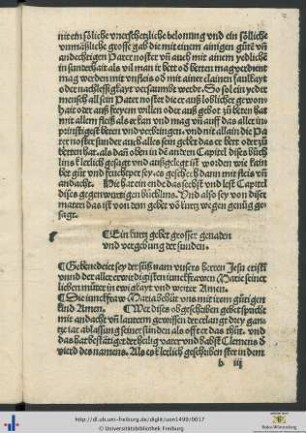 nit ein söliche vnerschetzliche belonung vnd ein söliche
vnmäßliche grosse gab die mit einem ainigen gůtē vn̄
andechtigen Pater noster vn̄ auch mit ainem yedliche
in sunderhait als vil man ir bett od betten mag verdienet
mag werden mit vnfleis od mit ainer clainen faulkayt
oder nachlessigkayt versaumbt werde. So sol ein yeder
mensch all sein Pater noster die er auß loblicher gewon
hait oder auß freyem willen oder auß gebot zů beten hat
mit allem fleiß als er kan vnd mag vn̄ auff das aller in
prünstigest beten vnd verbringen. vnd nit allain die Pa
ter noster sunder auch alles sein gebet das er bett oder zů
betten hat. als das oben in dē andern Capitel diseß büch
lins klerlich gesagt vnd außgelegt ist worden wie kain
bet gůt vnd fruchtper sey. es geschech dann mit fleis vn̄
andacht. Hie hat ein ende das sechst vnd lest Capitel
dises gegenwürtigen büchleins. Vnd also sey von diser
materi das ist von dem gebet vō kurtz wegen genůg ge
sagt.
¶ Ein kurtz gebet grosser genaden
vnd vergebung der sunden.
¶ Gebenedeiet sey der süß nam vnsers herren Jesu cristi
vnd der aller erwirdigisten iunckfrawen Marie seiner
lieben můter in ewigkayt vnd weyter Amen.
¶ Die iunckfraw Maria behůt vns mit irem gütigen
kind Amen. ¶ Wer dises obgeschriben gebet spricht
mit andacht vn̄ lauterm gewissen der erlangt drey gantz
tze iar ablassung seiner sünden als offt er das thůt. vnd
das hat bestätiget der heilig vater vnd babst Clemens d
vierd des namens. Als es klerlich geschriben stet in dem
b iij
http://dl.ub.uni-freiburg.de/diglit/ausm1490/0017
© Universitätsbibliothek Freiburg